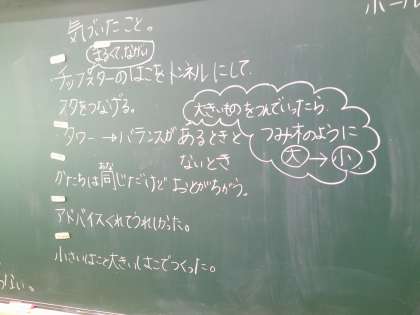 ホール
気づいたこと。
まるくて、ながい
チップスターのはこをトンネルにして
スタをつなげる。
大きいものをつんでいったら
タワー→バランスがあるときと
ないとき
つみ木のように
大→小
かたちは同じだけど おとがちがう。
アドバイスくれてうれしかった。
小さいはこと大きいはこでつくった。